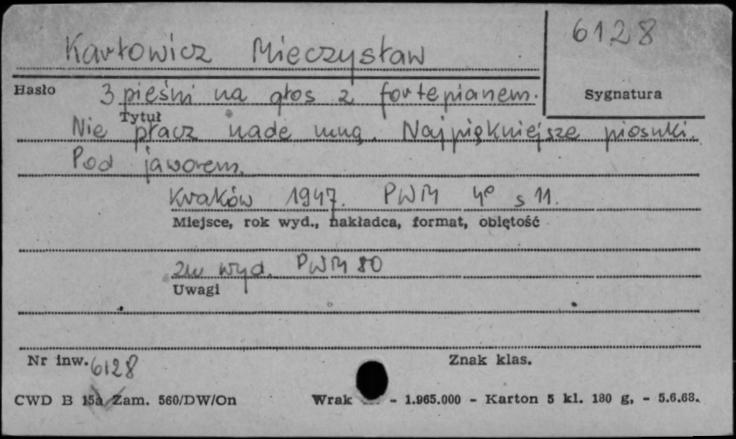 6128
Karłowicz Mieczysław
Hasło 3 pieśni na głos z fortepianem. Sygnatura
Tytuł
Nie płacz nade mną. Najpiękniejsze piosnki.
Pod jaworem.
Kraków 1947. PWM 4º s 11.
Miejsce, rok wyd., nakładca, format, objętość
zw wyd. PWM 80
Uwagi
Nr inw. 6128 Znak klas.
CWD B 15a Zam. 560/DW/On Wrak - 1.965.000 - Karton 5 kl. 180 g, - 5.6.68.